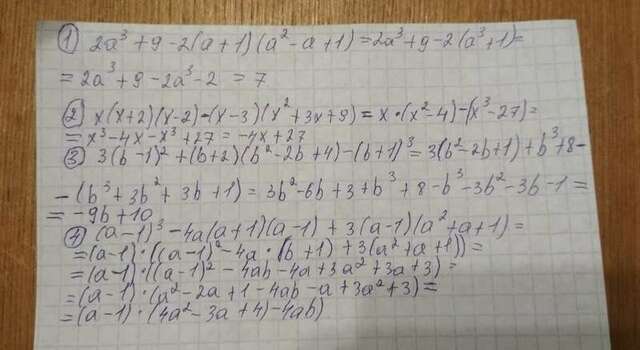 1) 2a³ + 9 - 2(a+1)(a² - a + 1) = 2a³ + 9 - 2(a³+1) =
= 2a³ + 9 - 2a³ - 2 = 7
2) x(x+2)(x-2) - (x-3)(x² + 3x + 9) = x·(x² - 4) - (x³ - 27) =
= x³ - 4x - x³ + 27 = -4x + 27
3) 3(b-1)² + (b+2)(b² - 2b + 4) - (b+1)³ = 3(b² - 2b + 1) + b³ + 8 -
- (b³ + 3b² + 3b + 1) = 3b² - 6b + 3 + b³ + 8 - b³ - 3b² - 3b - 1 =
= -9b + 10
4) (a-1)³ - 4a(a+1)(a-1) + 3(a-1)(a² + a + 1) =
= (a-1)·((a-1)² - 4a·(b+1) + 3(a² + a + 1)) =
= (a-1)·((a-1)² - 4ab - 4a + 3a² + 3a + 3) =
= (a-1)·(a² - 2a + 1 - 4ab - a + 3a² + 3) =
= (a-1)·(4a² - 3a + 4) - 4ab)